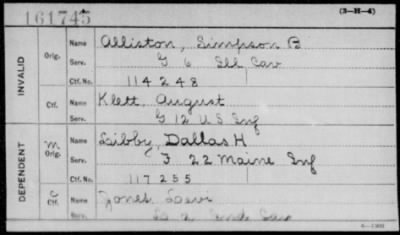 161745
(3-H-4)
INVALID
Orig.
Name Alliston, Simpson B
Serv. G 6 Ill Cav
Ctf. No. 114248
Ctf.
Name Klett, August
Serv. G 12 U S Inf
DEPENDENT
M Orig.
Name Libby, Dallas H
Serv. F 22 Maine Inf
Ctf. No. 117255
C Ctf.
Name Jones, Levi
Serv. 2 Cav